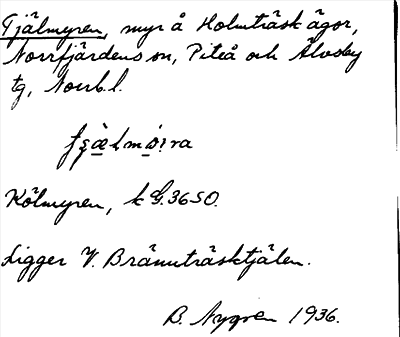 Tjälmyren, myr å Holmträsk ägor,
Norrfjärdens sn, Piteå och Älvsby
tg, Norrb. l.
Kölmyren, k G. 3650.
Ligger V. Brännträsktjälen.
B. Nygren 1936.